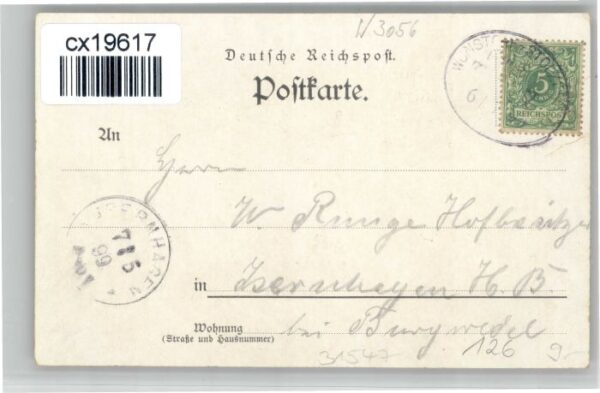 cx19617
W3056
Deutsche Reichspost.
Postkarte.
WUNSTO
5
REICHSPOST
An
Herrn
W. Runge Hofbesitzer
ISERNHAGEN
7 15
99
in Isernhagen H. B.
Wohnung
(Straße und Hausnummer)
bei Burgwedel
31547
126
9-